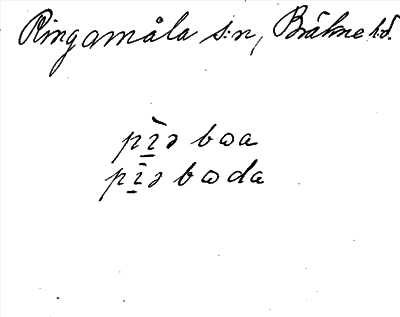 Ringamåla s:n, Bräkne hd.
pɪ̠̀ə bɷa
pɪ̠̀ə bɷda